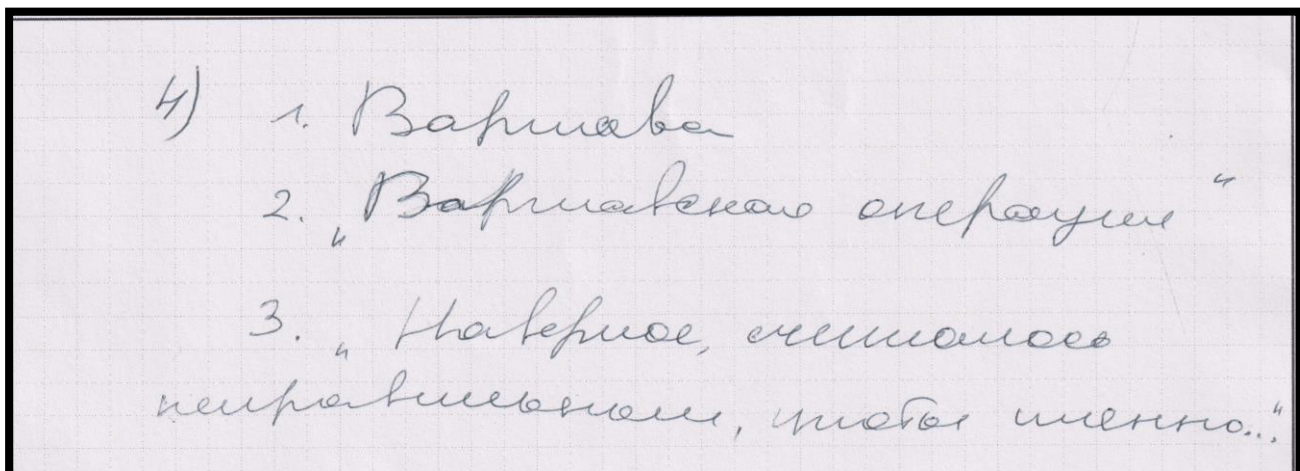 4) 1. Варшава
2. "Варшавская операция"
3. "Наверное, считалось
неправильным, чтобы именно..."